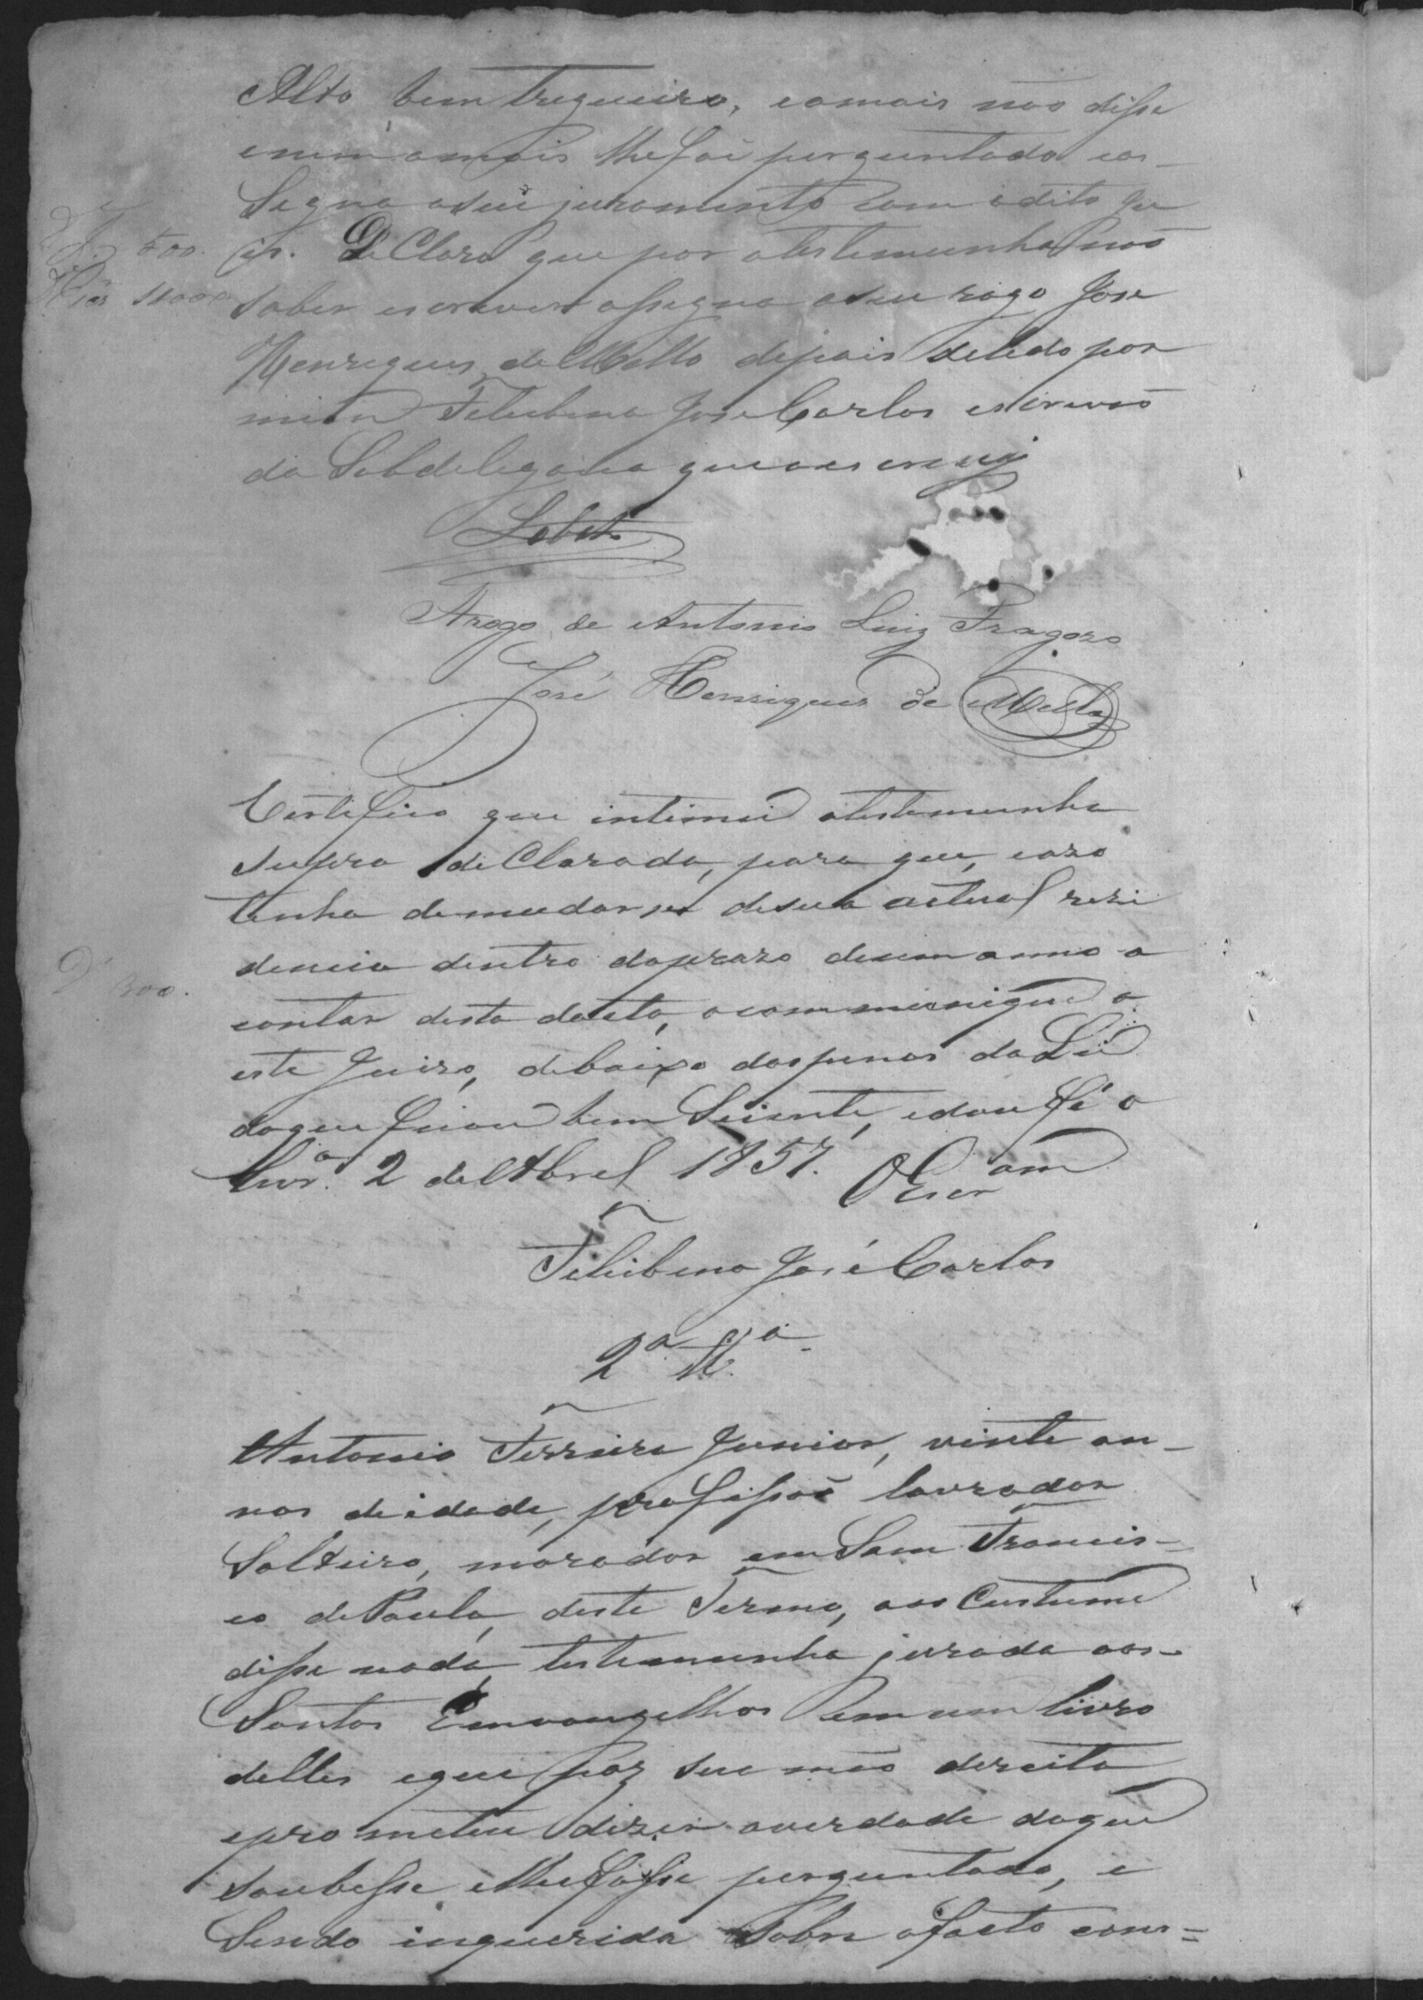 Alto, bem Tregueiro, e a mais não disse
e nem a mais lhe foi perguntado e as-
Signa o seu juramento com o dito Ju
iz. DeClaro que por a testemunha não
saber escrever assigna a seu rogo José
Henriques de Mello depois de lido por
mim José Carlos escrivão
da Subdelegacia que o escrevi
500.
Arogo de Antonio Luiz Fragozo
José Henriques de Mello
Certifico que intimei a testemunha
supra deClarada, para que, cazo
tenha de mudar se de sua actual rezi
dencia dentro do prazo de um anno a
contar desta data, o communique a
este Juizo, debaixo das penas da Lei
do que ficou bem Sciente, e dou fé
2 de Abril 1857. O Escr.am
300.
José Carlos
2ª Ttª
Antonio Ferreira Junior, vinte an-
nos de idade, profissão lavrador
Solteiro, morador em Sam Francis-
co de Paula, deste Termo, aos Custume
disse nada, testemunha jurada aos-
Santos Emvangelhos em um livro
delles e que poz sua mão dereita
e prometeu dizer a verdade do que
soubesse e lhe fosse perguntado, e
Sendo inquerida Sobre o facto cons=